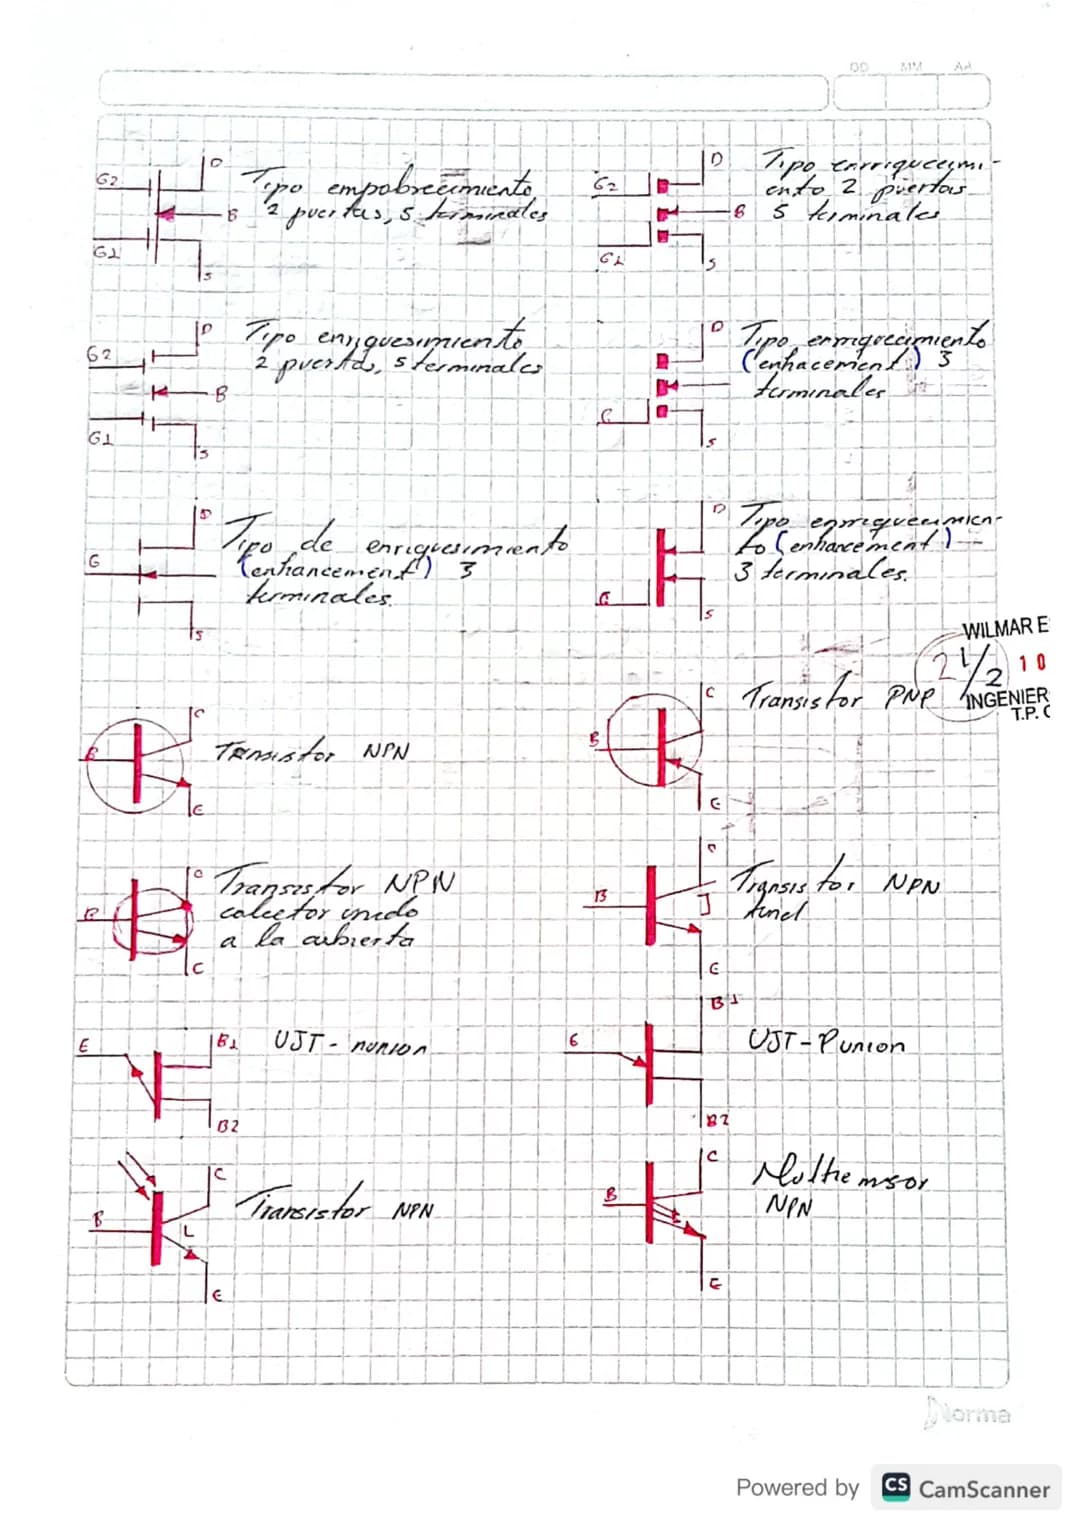 DD MM AA
D
G2
B
G1
S
Tipo empobrecimiento
2 puertas, 5 terminales
D
G2
B
G1
S
Tipo enrriquecimi-
ento 2 puertas
5 terminales
D
G2
B
G1
S
Tipo enriquesimiento
2 puertas, 5 terminales
D
G
S
Tipo enrriquecimiento
(enhacement) 3
terminales
D
G
S
Tipo de enriquesimiento
(enhancement) 3
terminales.
D
G
S
Tipo enrriquecimien-
to (enhancement)-
3 terminales.
WILMAR E
2 1/2 10
INGENIER
T.P. C
C
B
E
Transistor NPN
C
B
E
Transistor PNP
C
B
C
Transistor NPN
colector unido
a la cubierta
C
B
E
Transistor NPN
tunel
E
B1
B2
UJT - nunion
B1
E
B2
UJT-Punion
C
B
L
E
Transistor NPN
C
B
E
Multiemsor
NPN
Norma
Powered by CS CamScanner